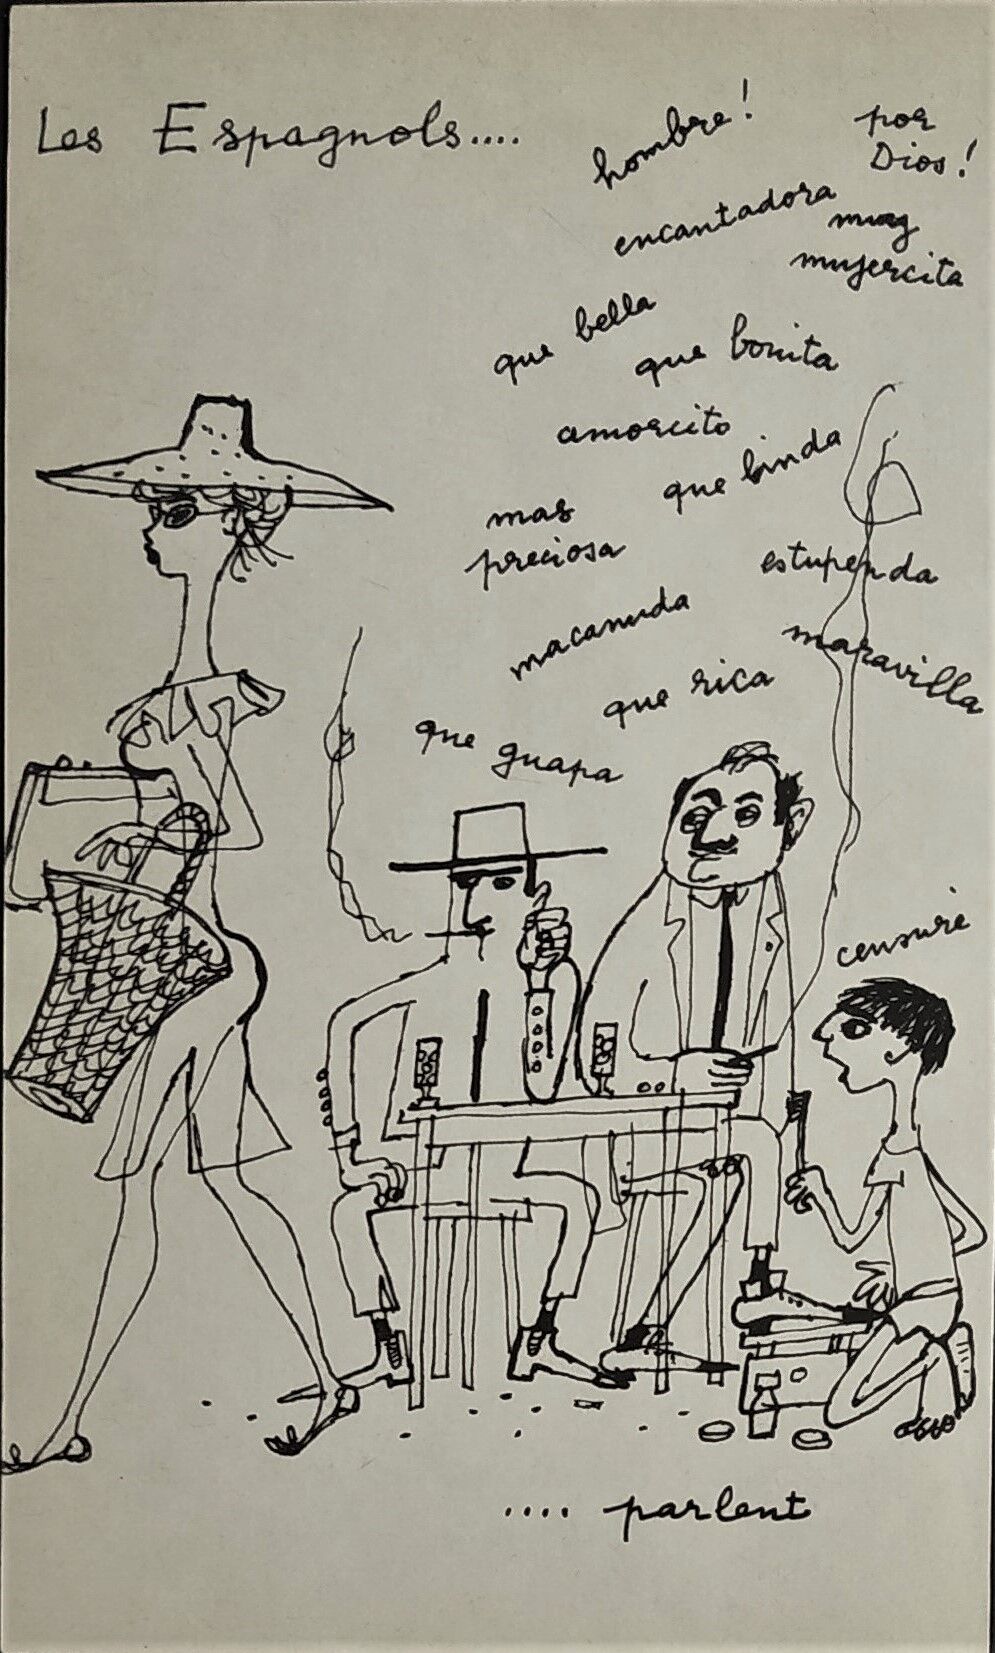 Les Espagnols....
hombre!
por
Dios!
encantadora
muy
mujercita
que bella
que bonita
amorcito
que linda
mas
preciosa
estupenda
macanuda
maravilla
que rica
que guapa
censuré
.... parlent